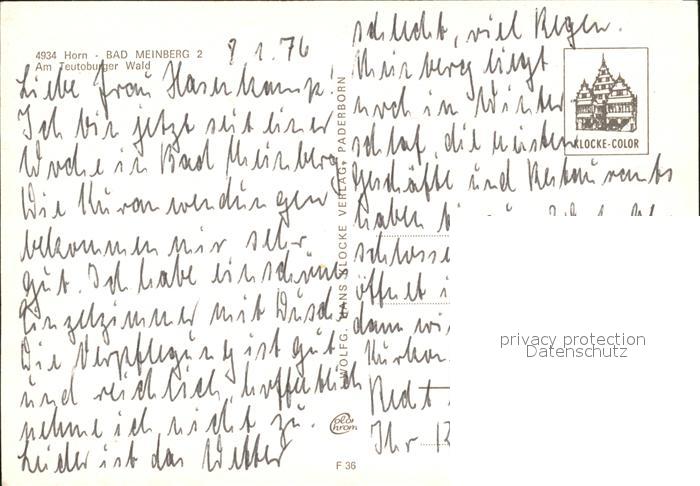 4934 Horn - BAD MEINBERG 2
Am Teutoburger Wald
9 1. 76
Liebe Frau Hasenkamp!
Ich bin jetzt seit einer
Woche in Bad Meinberg
Die Kuranwendungen
bekommen mir sehr
gut. Ich habe ein schönes
Einzelzimmer mit Dusche
Die Verpflegung ist gut
und reichlich, hoffentlich
nehme ich nicht zu.
Leider ist das Wetter
schlecht, viel Regen.
Meinberg liegt
noch im Winter
schlaf, die meisten
Geschäfte und Restaurants
haben
schlosse
öffnet
dann
Kurkon
Recht
Ihr
WOLFG. HANS KLOCKE VERLAG, PADERBORN
KLOCKE-COLOR
color chrom
F 36
privacy protection
Datenschutz